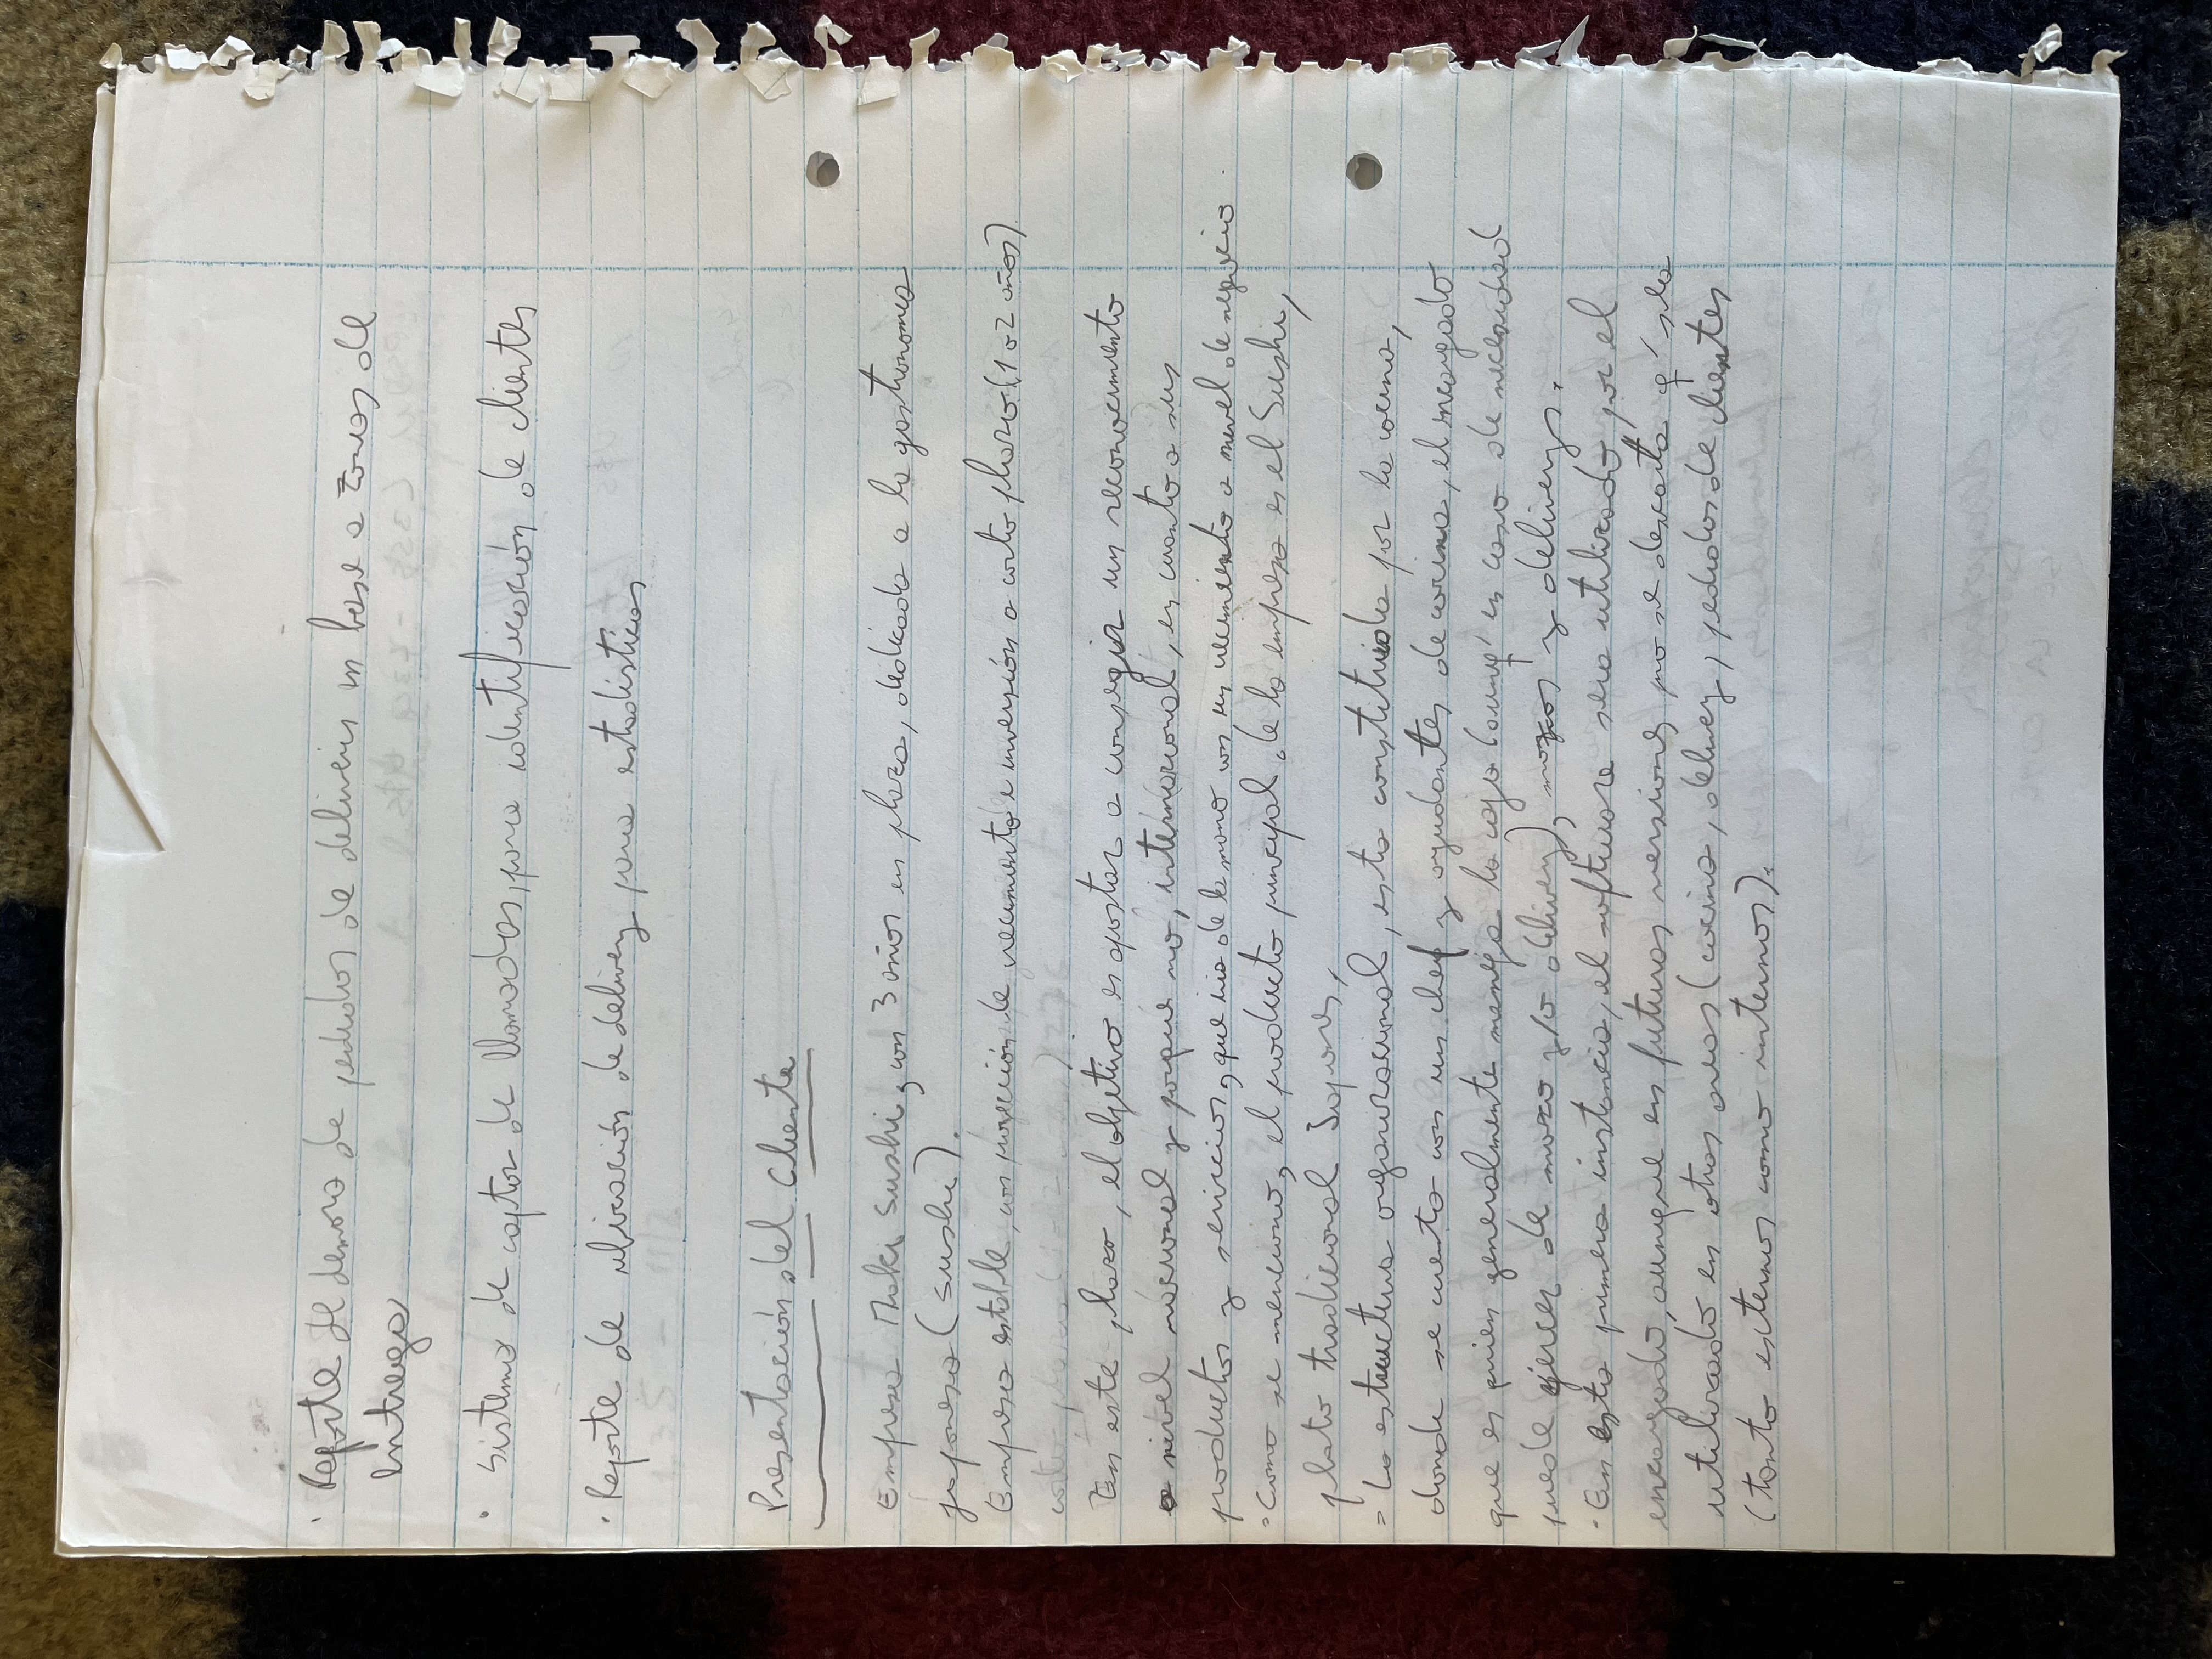 · Reporte de demora de pedidos de deliveris en base a zonas de
entrega
· Sistema de captor de llamadas, para identificación de clientes
· Reporte de ubicación de delivery para estadisticas
Presentación del Cliente
Empresa Maki Sushi, con 3 años en plaza, dedicada a la gastronomia
japonesa (sushi).
Empresa estable, con proyección de crecimiento e inversión a corto plazo (1 o 2 años).
corto plazo (1 o 2 años)
En este plazo, el objetivo es apostar a conseguir un reconocimiento
a nivel nacional y porqué no, internacional, en cuanto a sus
productos y servicios, que iria de la mano con un crecimiento a nivel de negocio
· Como se menciono, el producto principal de la empresa es el Sushi,
plato tradicional Japones,
- La estructura organizacional, esta constituida por la cocina,
donde se cuenta con un chef y ayudantes de cocina, el encargado
que es quien generalmente maneja la caja (aunq' en caso de necesidad
puede ejercer de mozo y/o delivery), mozos y deliverys.
· En esta primera instancia, el software sera utilizado por el
encargado, aunque en futuras versiones no se descarta q' sea
utilizado en otras areas (cocina, delivery, pedidos de clientes
(tanto externos como internos).